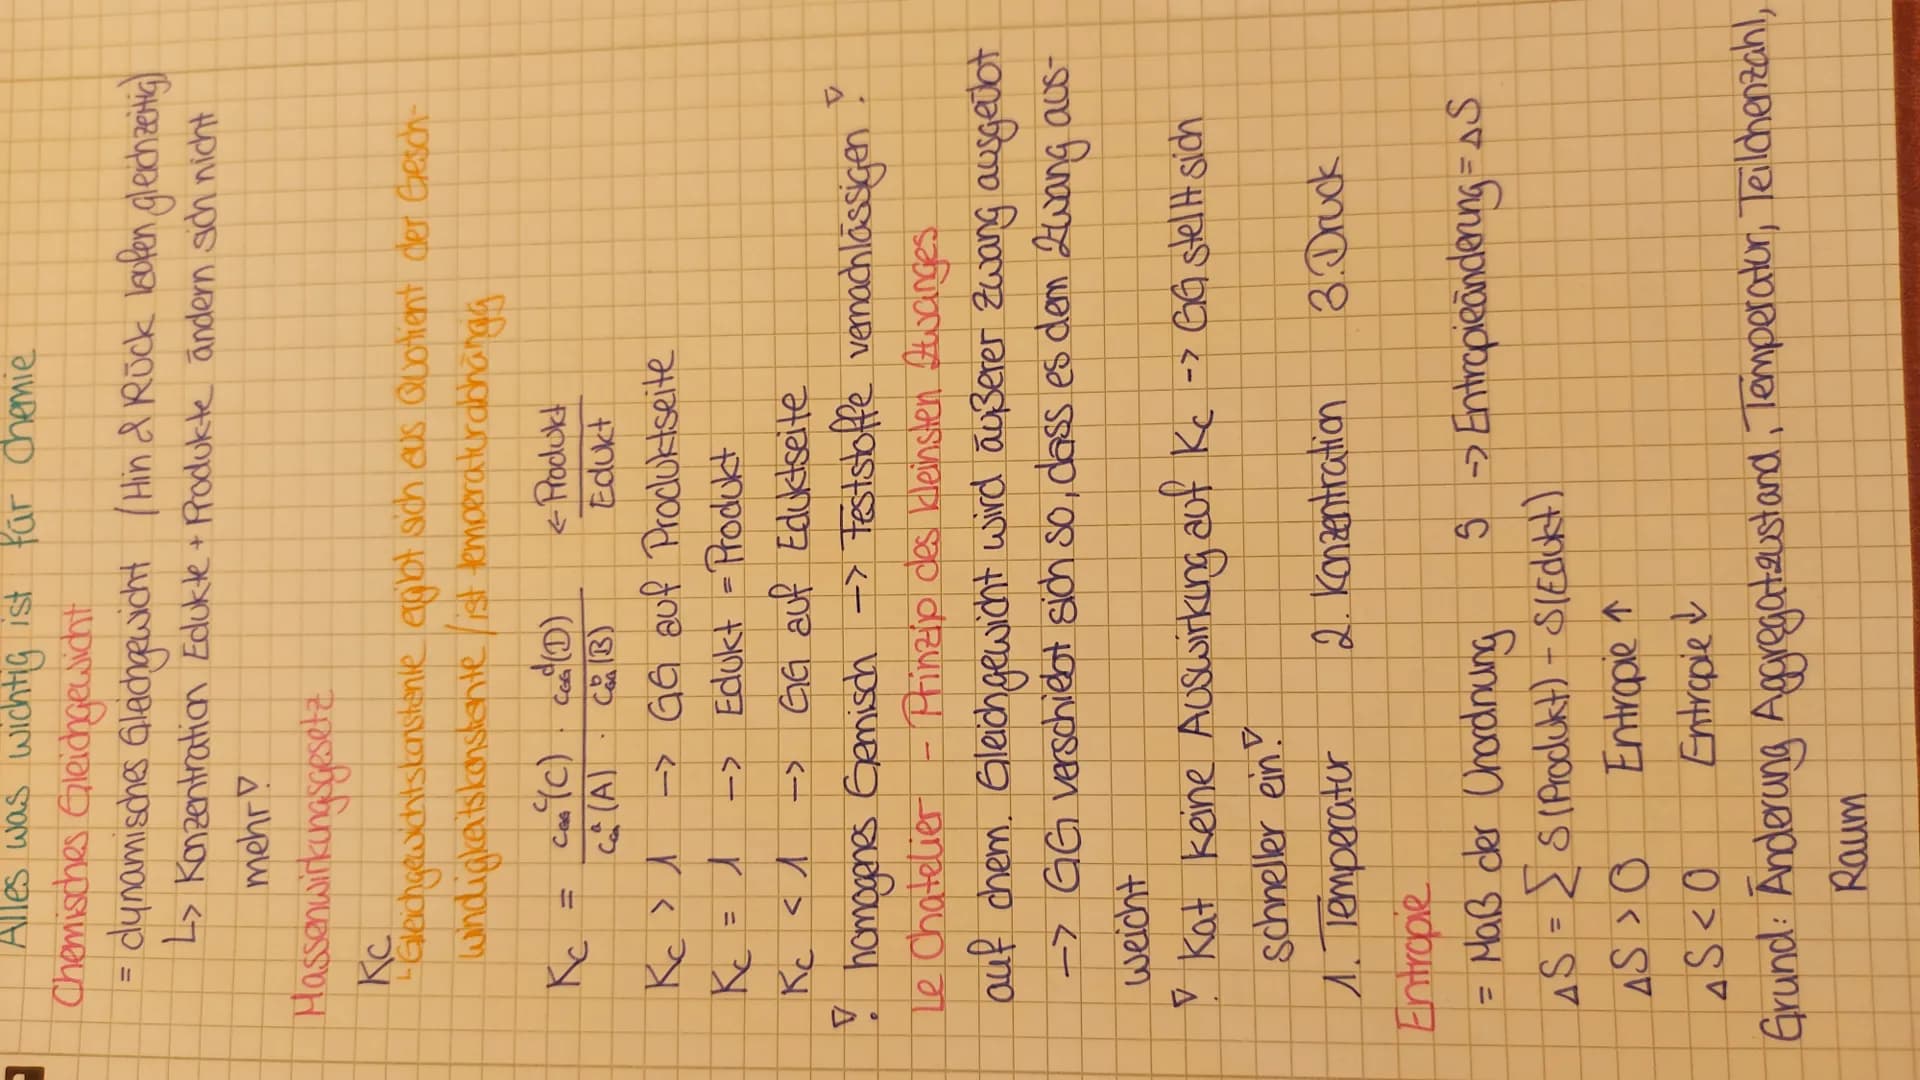 Alles was wichtig ist für Chemie
Chemisches Gleichgewicht
= dynamisches Gleichgewicht (Hin & Rück laufen gleichzeitig)
L> Konzentration Edukte + Produkte ändern sich nicht
mehr!
Massenwirkungsgesetz
Kc
Gleichgewichtskonstante ergibt sich aus Quotient der Gesch-
windigkeitskonstante / ist temperaturabhängig
Kc = c^c(C) · c^d(D) / c^a(A) · c^b(B) <- Produkt / Edukt
Kc > 1 --> GG auf Produktseite
Kc = 1 --> Edukt = Produkt
Kc < 1 --> GG auf Eduktseite
! homogenes Gemisch --> Feststoffe vernachlässigen !
Le Chatelier - Prinzip des kleinsten Zwanges
auf chem. Gleichgewicht wird äußerer Zwang ausgeübt
--> GG verschiebt sich so, dass es dem Zwang aus-
weicht
! Kat keine Auswirkung auf Kc -> GG stellt sich
schneller ein!
1. Temperatur 2. Konzentration 3. Druck
Entropie
= Maß der Unordnung S -> Entropieänderung = ΔS
ΔS = ∑ S(Produkt) - S(Edukt)
ΔS > 0 Entropie ↑
ΔS < 0 Entropie ↓
Grund: Änderung Aggregatzustand, Temperatur, Teilchenzahl,
Raum